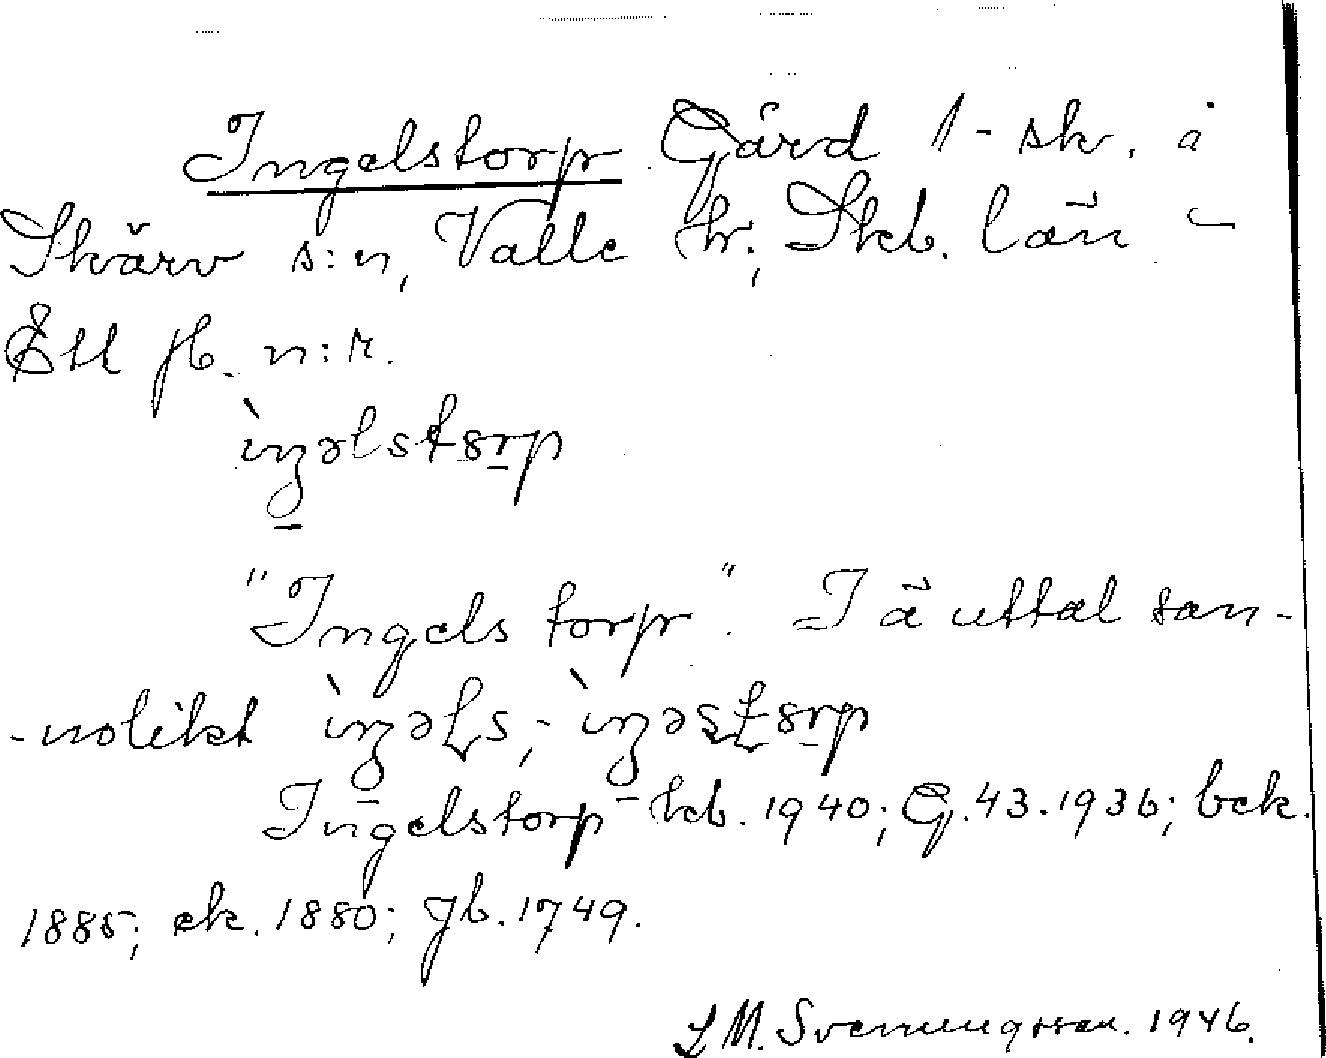 Ingelstorp Gård 1 - sk. i
Skärv s:n, Valle hr; Skb. län -
Ett jb. n:r.
ìŋəlstørp
"Ingels torp". I ä uttal san-
-nolikt ìŋəls,- ìŋəstørp
Ingelstorp kb. 1940; G. 43. 1936; bek.
1885; ek. 1880; jb. 1749.
L M. Svenungsson. 1946.